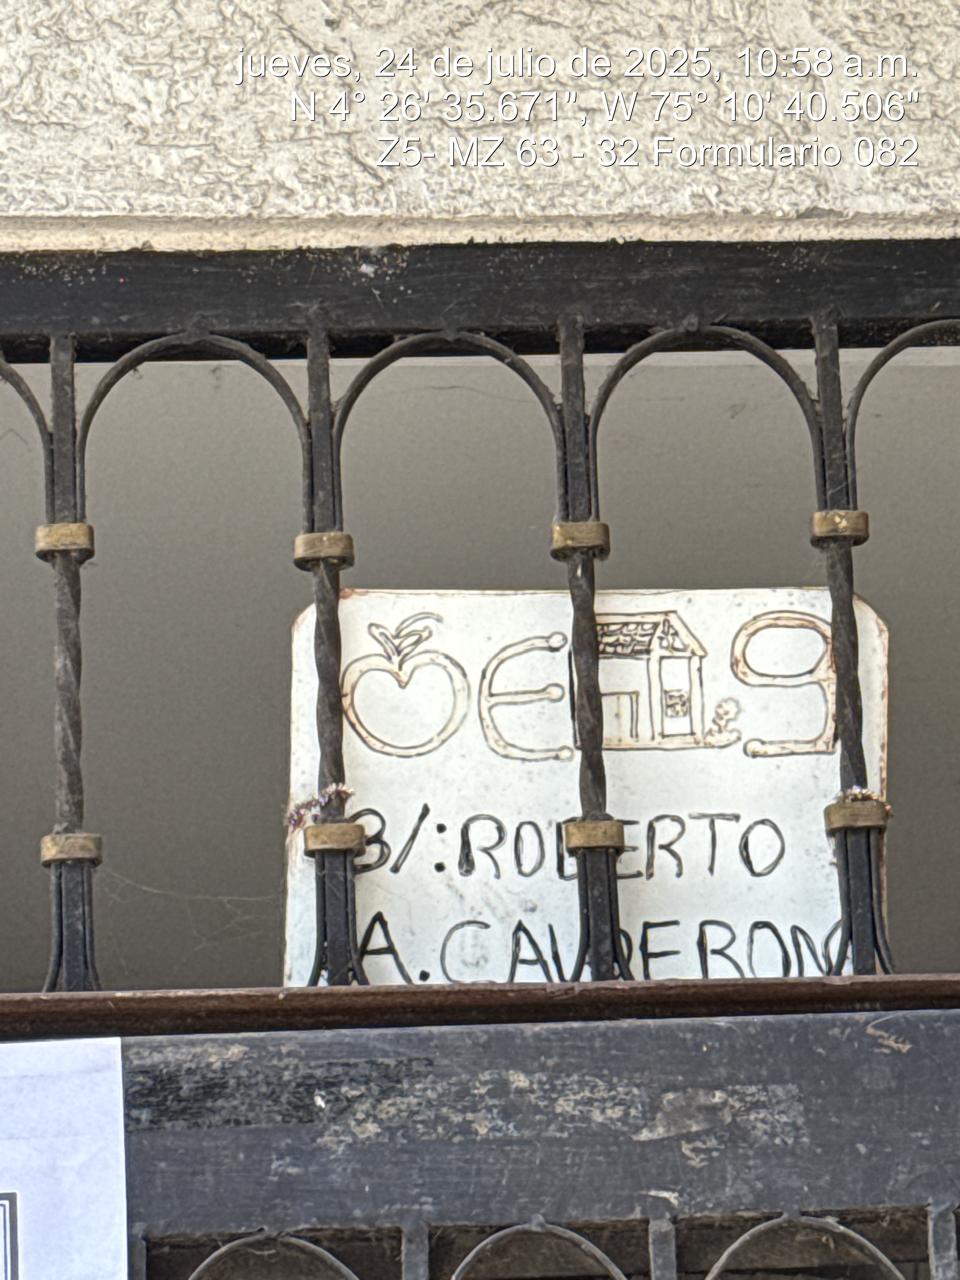 jueves, 24 de julio de 2025, 10:58 a.m.
N 4° 26' 35.671", W 75° 10' 40.506"
Z5- MZ 63 - 32 Formulario 082
B/:ROBERTO
A.CALDERON